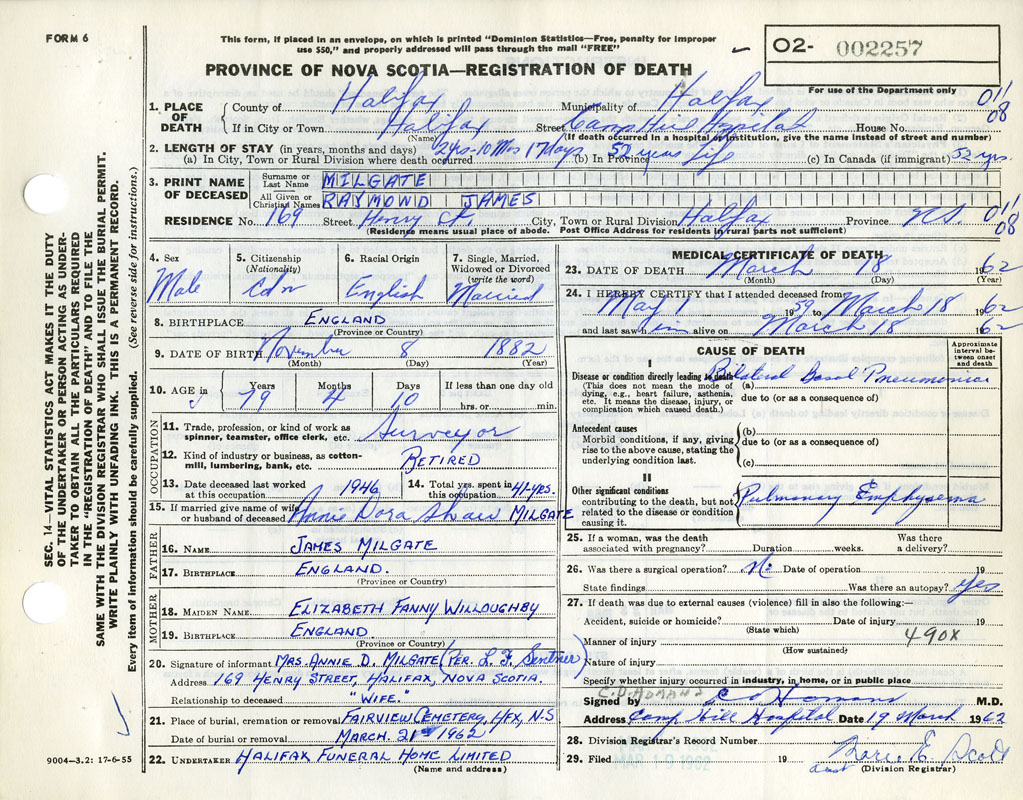 FORM 6
This form, if placed in an envelope, on which is printed "Dominion Statistics—Free, penalty for improper
use $50," and properly addressed will pass through the mail "FREE"
O2- 002257
PROVINCE OF NOVA SCOTIA—REGISTRATION OF DEATH
For use of the Department only
1. PLACE OF DEATH
County of Halifax Municipality of Halifax 011
If in City or Town Halifax Street Camp Hill Hospital House No. 08
(Name) (If death occurred in a hospital or institution, give the name instead of street and number)
2. LENGTH OF STAY (in years, months and days) 2 yrs-10 Mos 17 days 52 years life 52 yrs.
(a) In City, Town or Rural Division where death occurred (b) In Province (c) In Canada (if immigrant)
3. PRINT NAME OF DECEASED
Surname or Last Name MILGATE
All Given or Christian Names RAYMOND JAMES
RESIDENCE No. 169 Street Henry St. City, Town or Rural Division Halifax Province N.S. 011
08
(Residence means usual place of abode. Post Office Address for residents in rural parts not sufficient)
4. Sex
Male
5. Citizenship
(Nationality)
Cdn
6. Racial Origin
English
7. Single, Married,
Widowed or Divorced
(write the word)
Married
8. BIRTHPLACE ENGLAND
(Province or Country)
9. DATE OF BIRTH November 8 1882
(Month) (Day) (Year)
10. AGE in
Years Months Days If less than one day old
79 4 10 hrs. or min.
OCCUPATION
11. Trade, profession, or kind of work as
spinner, teamster, office clerk, etc. Surveyor
12. Kind of industry or business, as cotton-
mill, lumbering, bank, etc. RETIRED
13. Date deceased last worked
at this occupation 1946
14. Total yrs. spent in
this occupation 41-yrs.
15. If married give name of wife
or husband of deceased Annie Dora Shaw MILGATE
FATHER
16. NAME JAMES MILGATE
17. BIRTHPLACE ENGLAND.
(Province or Country)
MOTHER
18. MAIDEN NAME ELIZABETH FANNY WILLOUGHBY
19. BIRTHPLACE ENGLAND
(Province or Country)
20. Signature of informant MRS. ANNIE D. MILGATE (PER. L. F. Sentner)
Address 169 HENRY STREET, HALIFAX, NOVA SCOTIA.
Relationship to deceased "WIFE."
21. Place of burial, cremation or removal FAIRVIEW CEMETERY, HFX, N-S
Date of burial or removal MARCH. 21st 1962
22. UNDERTAKER HALIFAX FUNERAL HOME LIMITED
(Name and address)
MEDICAL CERTIFICATE OF DEATH
23. DATE OF DEATH March 18 1962
(Month) (Day) (Year)
24. I HEREBY CERTIFY that I attended deceased from
May 1 1959 to March 18 1962
and last saw him alive on March 18 1962
CAUSE OF DEATH
Approximate
interval be-
tween onset
and death
I
Disease or condition directly leading to death Bilateral Basal Pneumonia
(This does not mean the mode of (a)
dying, e.g., heart failure, asthenia, due to (or as a consequence of)
etc. It means the disease, injury, or
complication which caused death.)
Antecedent causes
Morbid conditions, if any, giving (b)
rise to the above cause, stating the due to (or as a consequence of)
underlying condition last. (c)
II
Other significant conditions
contributing to the death, but not Pulmonary Emphysema
related to the disease or condition
causing it.
25. If a woman, was the death
associated with pregnancy? Duration weeks.
Was there
a delivery?
26. Was there a surgical operation? No Date of operation 19
State findings Was there an autopsy? Yes
27. If death was due to external causes (violence) fill in also the following:—
Accident, suicide or homicide? Date of injury 19
(State which)
490X
Manner of injury
(How sustained)
Nature of injury
Specify whether injury occurred in industry, in home, or in public place
C.D. HOMANS
Signed by C D Homans M.D.
Address Camp Hill Hospital Date 19 March 1962
28. Division Registrar's Record Number
29. Filed MAR 19 1962 19
E. Scott
(Division Registrar)
SEC. 14—VITAL STATISTICS ACT MAKES IT THE DUTY
OF THE UNDERTAKER OR PERSON ACTING AS UNDER-
TAKER TO OBTAIN ALL THE PARTICULARS REQUIRED
IN THE "REGISTRATION OF DEATH" AND TO FILE THE
SAME WITH THE DIVISION REGISTRAR WHO SHALL ISSUE THE BURIAL PERMIT.
WRITE PLAINLY WITH UNFADING INK. THIS IS A PERMANENT RECORD.
Every item of information should be carefully supplied. (See reverse side for instructions.)
9004-3.2: 17-6-55